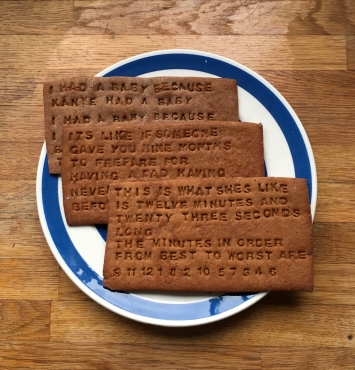 I HAD A BABY BECAUSE
KANYE HAD A BABY
I HAD A BABY BECAUSE
ITS LIKE IF SOMEONE
GAVE YOU NINE MONTHS
TO PREPARE FOR
HAVING A FAD HAVING
NEVE
BEFO
THIS IS WHAT SHES LIKE
IS TWELVE MINUTES AND
TWENTY THREE SECONDS
LONG
THE MINUTES IN ORDER
FROM BEST TO WORST ARE
9 11 12 1 8 2 10 5 7 3 4 6